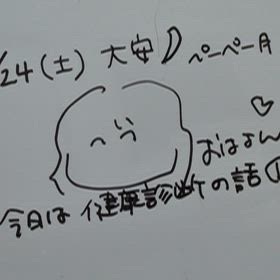 /24(土) 大安 ペーペー月
おはよん♡
今日は健康診断の話①